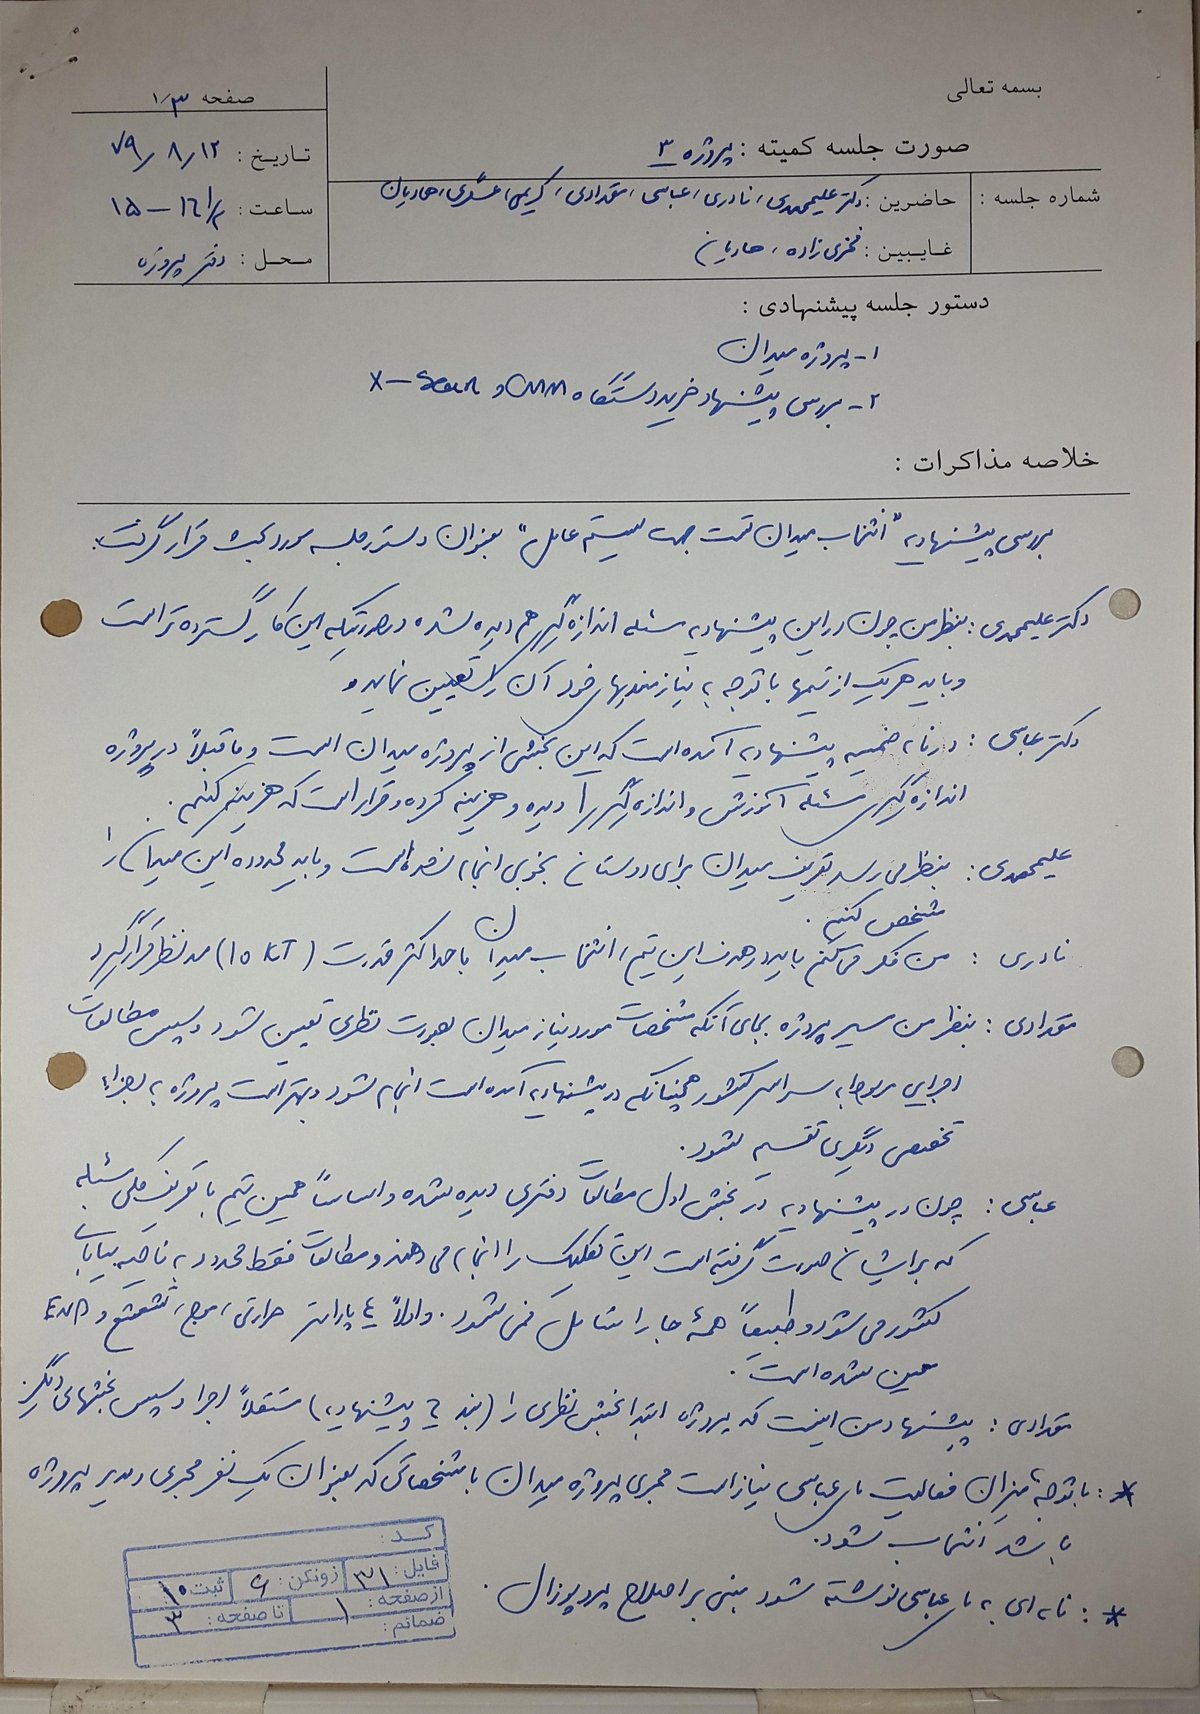 بسمه تعالی
صفحه ۱/۳
صورت جلسه کمیته : پروژه ۳
تاریخ : ۷۹/۸/۱۲
شماره جلسه :
حاضرین : دکتر علیمحمدی، نادری، عباسی، مقدادی، کریمی، عسگری، حاریان
ساعت : ۱۵ – ۱۶ ۱/۲
غایبین : فخری زاده ،
محل : دفتر پروژه
دستور جلسه پیشنهادی :
۱- پروژه میدان
۲- بررسی پیشنهاد خرید دستگاه CMM و X-Scan
خلاصه مذاکرات :
بررسی پیشنهادیه "انتخاب میدان تست جهت سیستم عامل" بعنوان دستور جلسه مورد بحث قرار گرفت.
دکتر علیمحمدی : بنظر من چون در این پیشنهادیه مسئله اندازه گیری هم دیده نشده در صورتیکه این کار گسترده تر است
و باید هر یک از تیمها با توجه به نیازمندیهای خود آن را تعیین نماید و
دکتر عباسی : در نامه ضمیمه پیشنهادیه آمده است که این بخشی از پروژه میدان است و ما قبلاً در پروژه
اندازه گیری مسئله آموزش و اندازه گیری را دیده و هزینه کرده و قرار است که هزینه کنیم .
علیمحمدی : بنظر می رسد تعریف میدان برای دوستان بخوبی انجام نشده است و باید محدوده این میدان را
مشخص کنیم .
نادری : من فکر می کنم باید در هدف این تیم، انتخاب میدان با حداکثر قدرت (10 KT) مد نظر قرار گیرد
مقدادی : بنظر من سیر پروژه بجای آنکه مشخصات مورد نیاز میدان بصورت نظری تعیین شود و سپس مطالعات
اجرایی مربوط به سراسر کشور همچنانکه در پیشنهادیه آمده است انجام شود و بهتر است پروژه به اجزاء
تخصصی دیگری تقسیم شود.
عباسی : چون در پیشنهادیه در بخش اول مطالعات دفتری دیده شده و اساساً همین تیم با تعریف کلی مسئله
که برایشان صورت گرفته است این تفکیک را انجام می دهند و مطالعات فقط محدود به ناحیه بیابانی
کشور می شود و طبیعتاً همۀ جا را شامل نمی شود. و اولاً ۴ پارامتر حرارتی، موج، تشعشع و EMP
معین شده است .
مقدادی : پیشنهاد من اینست که پروژه ابتدا بخش نظری را (بند ۲ پیشنهادیه) مستقلاً اجرا و سپس بخشهای دیگر
* : با توجه میزان فعالیت های عباسی نیاز است مجری پروژه میدان با مشخصاتی که بعنوان یک نفر مجری و مدیر پروژه
باشد انتخاب شود.
* : نامه ای به عباسی نوشته شود مبنی بر اصلاح پروپوزال .
کد :
فایل : ۳۱ زونکن : ۶ ثبت : ۱۰
از صفحه : ۱ تا صفحه : ۳
ضمائم :